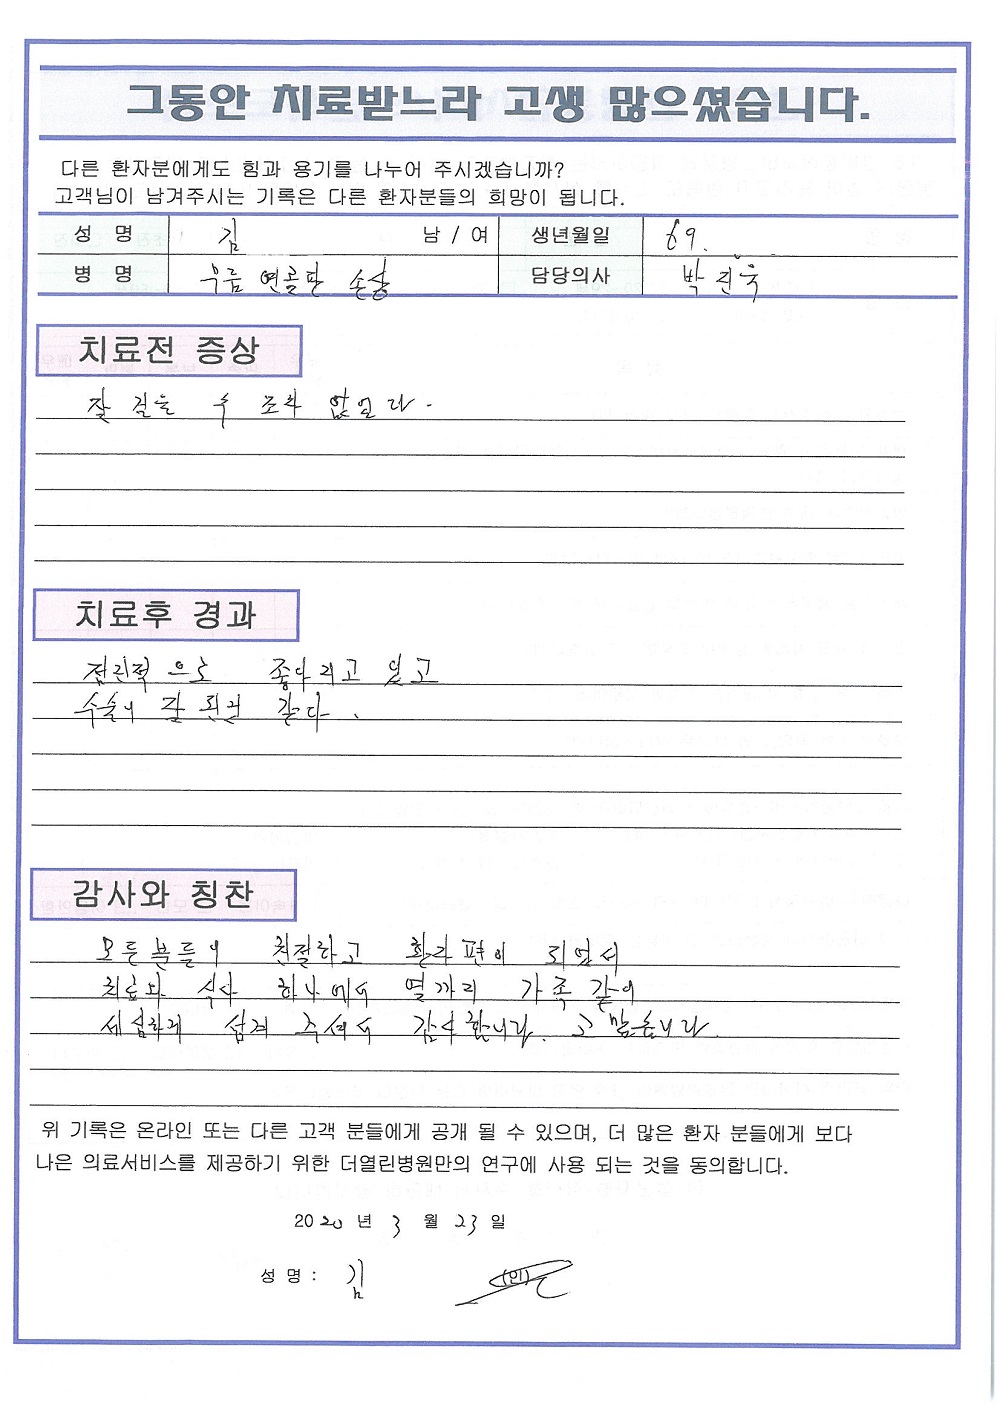 그동안 치료받느라 고생 많으셨습니다.
다른 환자분에게도 힘과 용기를 나누어 주시겠습니까?
고객님이 남겨주시는 기록은 다른 환자분들의 희망이 됩니다.
성 명 김 남 / 여 생년월일 69.
병 명 무릎 연골판 손상 담당의사 박진욱
치료전 증상
잘 걸을 수 조차 없었다.
치료후 경과
점진적으로 좋아지고 있고
수술이 잘 된것 같다.
감사와 칭찬
모든분들이 친절하고 환자 편이 되었서
치료와 식사 하나에서 열까지 가족 같이
세심하게 섬겨 주셔서 감사합니다. 고맙습니다.
위 기록은 온라인 또는 다른 고객 분들에게 공개 될 수 있으며, 더 많은 환자 분들에게 보다
나은 의료서비스를 제공하기 위한 더열린병원만의 연구에 사용 되는 것을 동의합니다.
2020 년 3 월 23 일
성 명 : 김 (인)